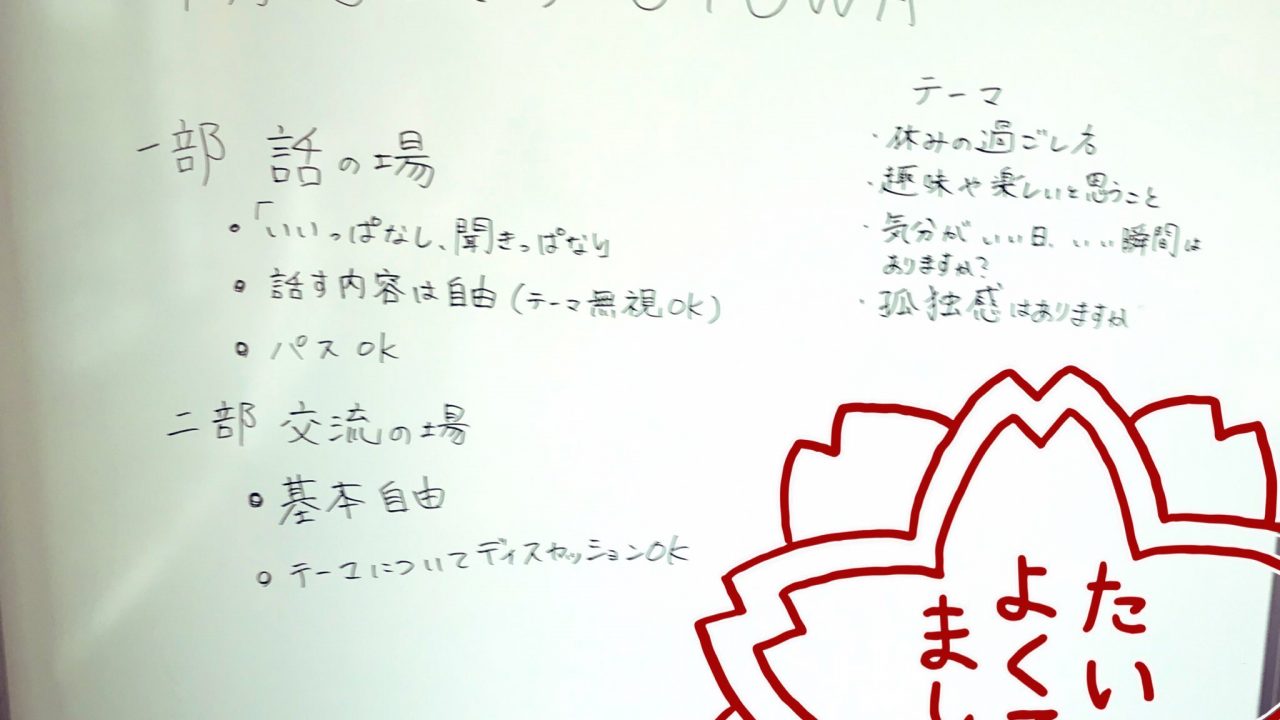 一部 話の場
・「いいっぱなし、聞きっぱなし
・話す内容は自由(テーマ無視OK)
・パスOK
二部 交流の場
・基本自由
・テーマについてディスカッションOK
テーマ
・休みの過ごし方
・趣味や楽しいと思うこと
・気分がいい日、いい瞬間は
ありますか?
・孤独感はありますか
たい
よく
まし